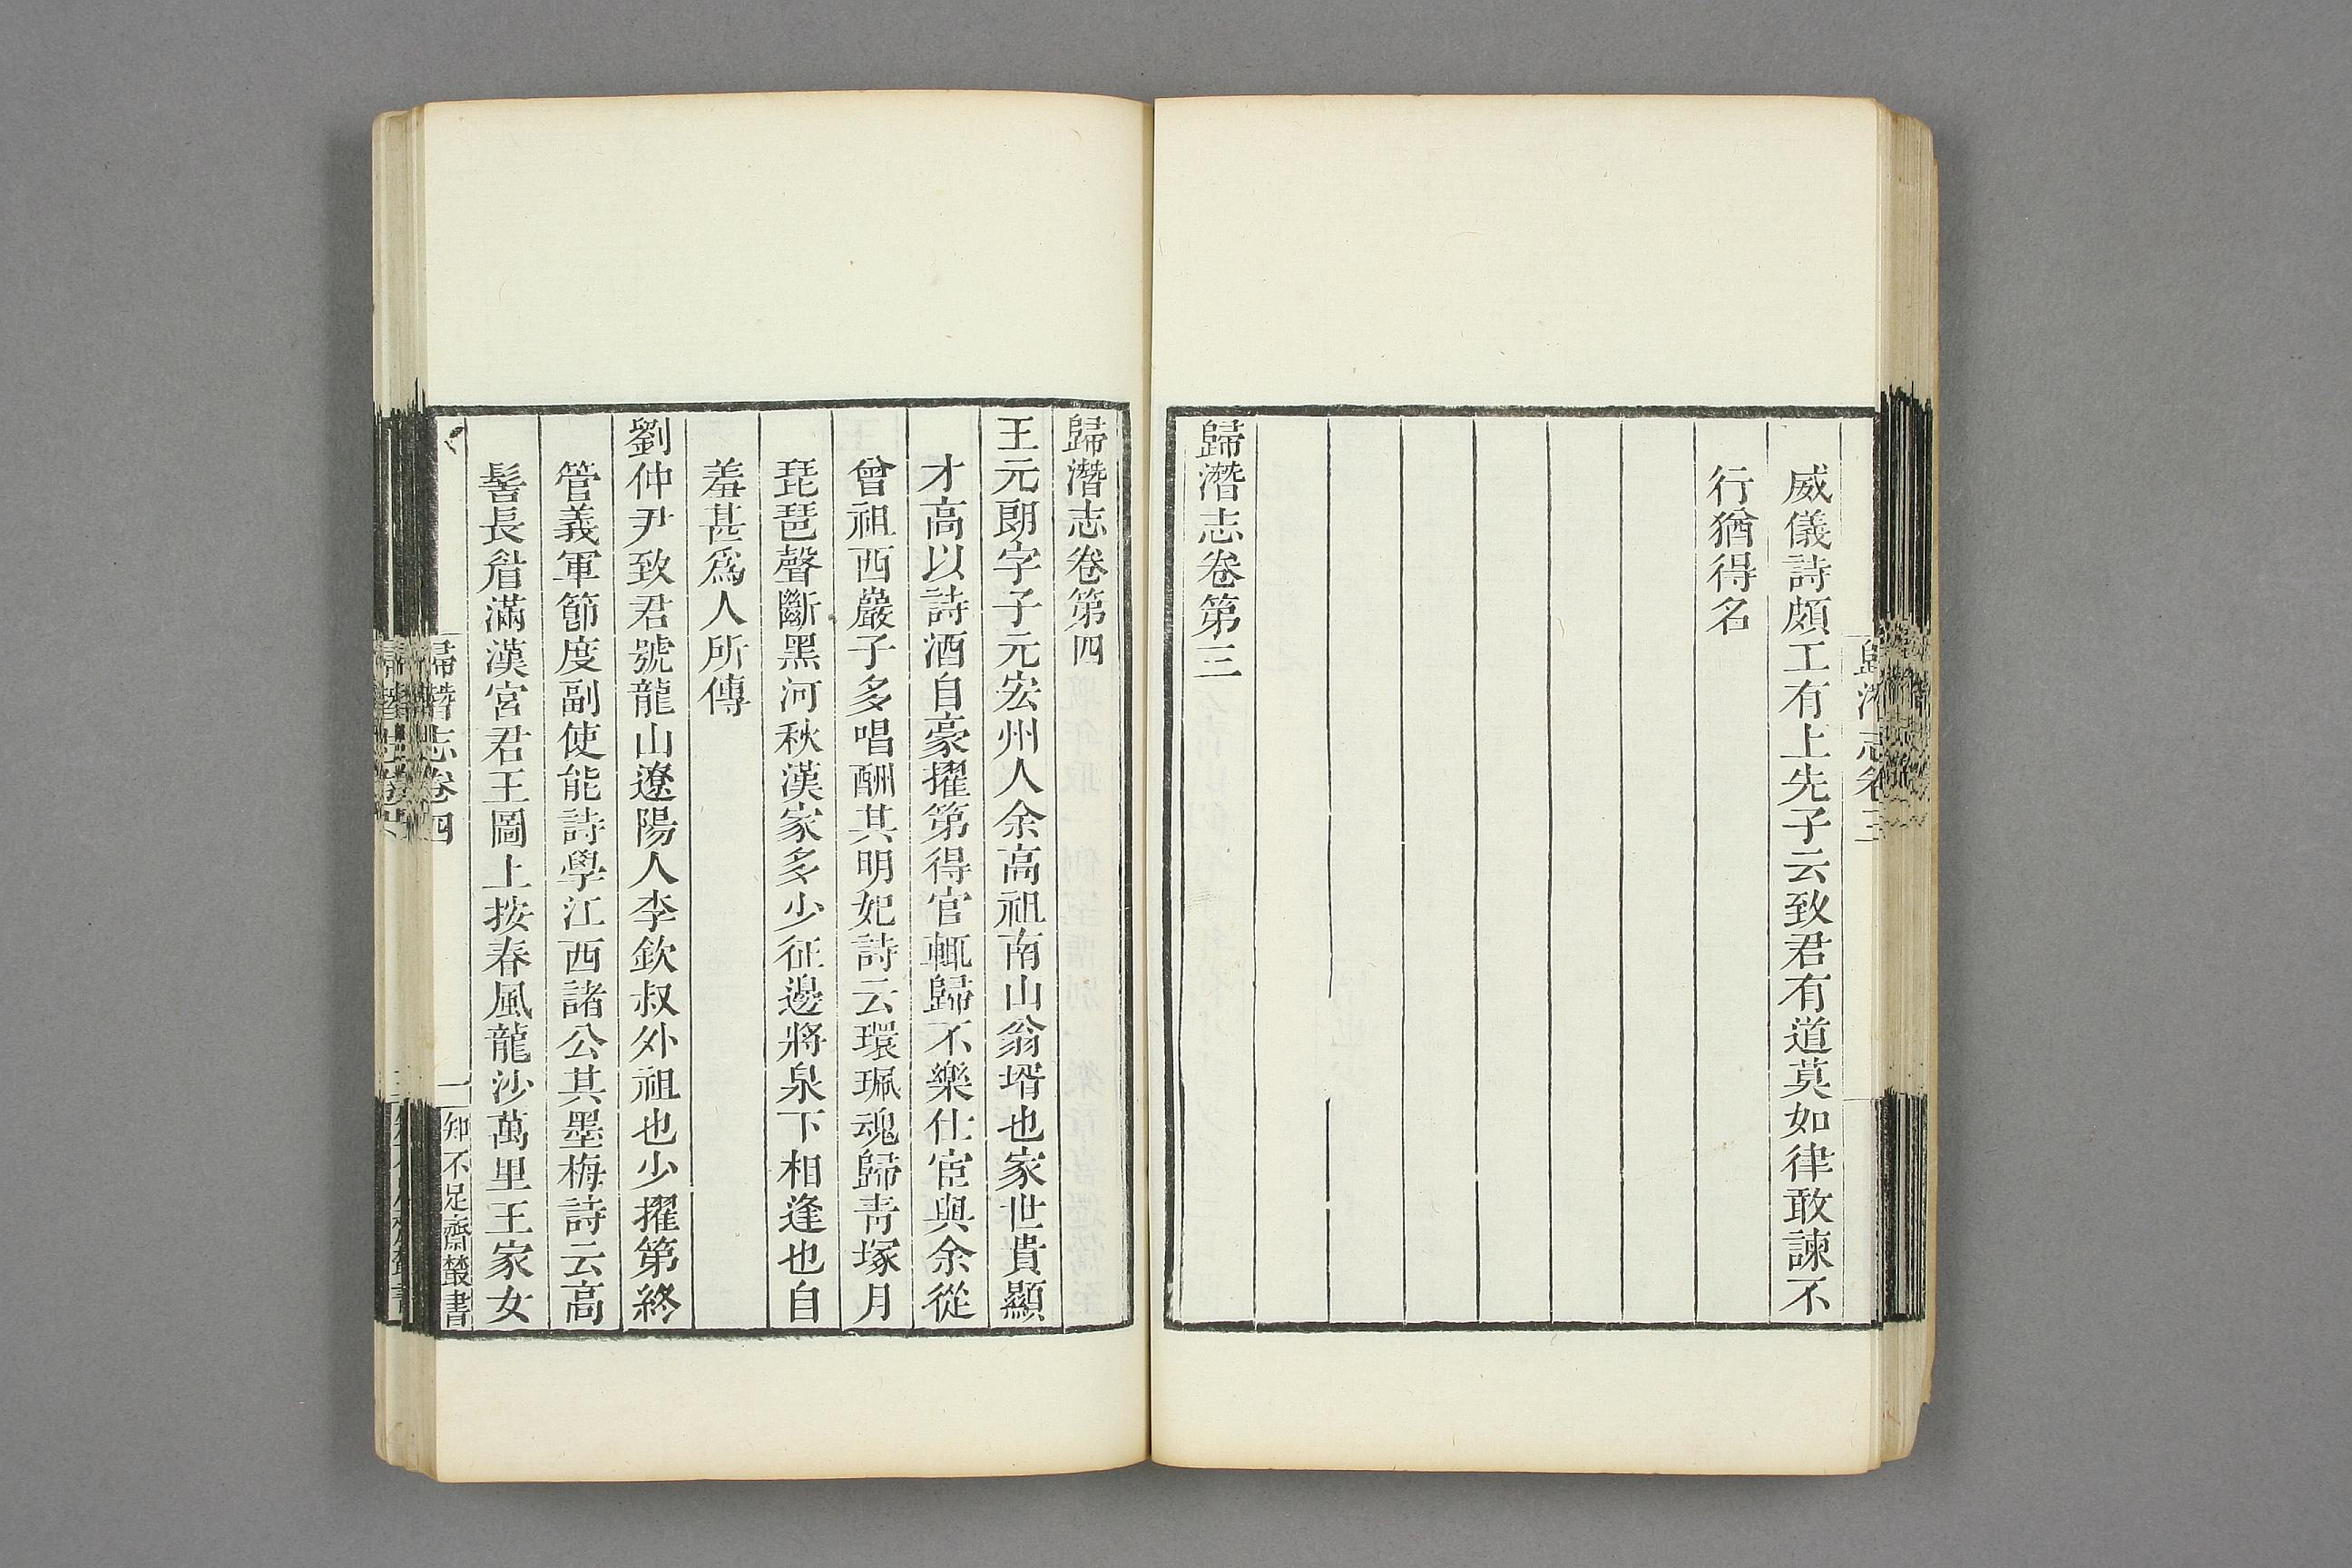 威儀詩頗工有上先子云致君有道莫如律敢諫不
行猶得名
歸潛志卷第三
歸潛志卷第四
王元朗字子元宏州人余高祖南山翁壻也家世貴顯
才高以詩酒自豪擢第得官輒歸不樂仕宦與余從
曾祖西巖子多唱酬其明妃詩云環珮魂歸靑塚月
琵琶聲斷黑河秋漢家多少征邊將泉下相逢也自
羞甚爲人所傳
劉仲尹致君號龍山遼陽人李欽叔外祖也少擢第終
管義軍節度副使能詩學江西諸公其墨梅詩云高
髻長眉滿漢宮君王圖上按春風龍沙萬里王家女
歸潛志卷四
一
知不足齋叢書